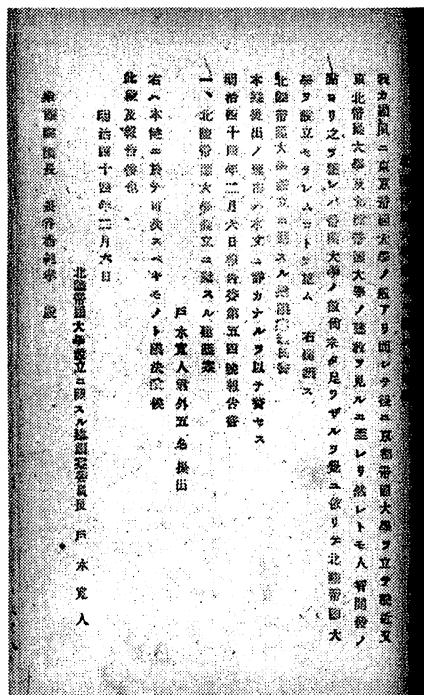 我カ國ニ東京帝國大學ノ設アリ而シテ後ニ京都帝國大學ヲ立テ最近又
東北帝國大學及九州帝國大學ノ建設ヲ見ルニ至レリ然レトモ人智開發ノ
點ヨリ之ヲ觀レバ帝國大學ノ數尚未タ足ラザルヲ覺ユ依リテ北陸帝國大
學ヲ設立セラレムコトヲ望ム 右建議ス
北陸帝國大學設立ニ關スル建議案
本案提出ノ理由ハ本文ニ詳カナルヲ以テ贅セス
明治四十四年二月六日報告委第五四號報告書
一、北陸帝國大學設立ニ關スル建議案
戸水寛人君外五名提出
右ハ本院ニ於テ可決スベキモノト議決致候
此段及報告候也
明治四十四年二月六日
北陸帝國大學設立ニ關スル建議案委員長 戸水寛人
衆議院議長 長谷場純孝 殿